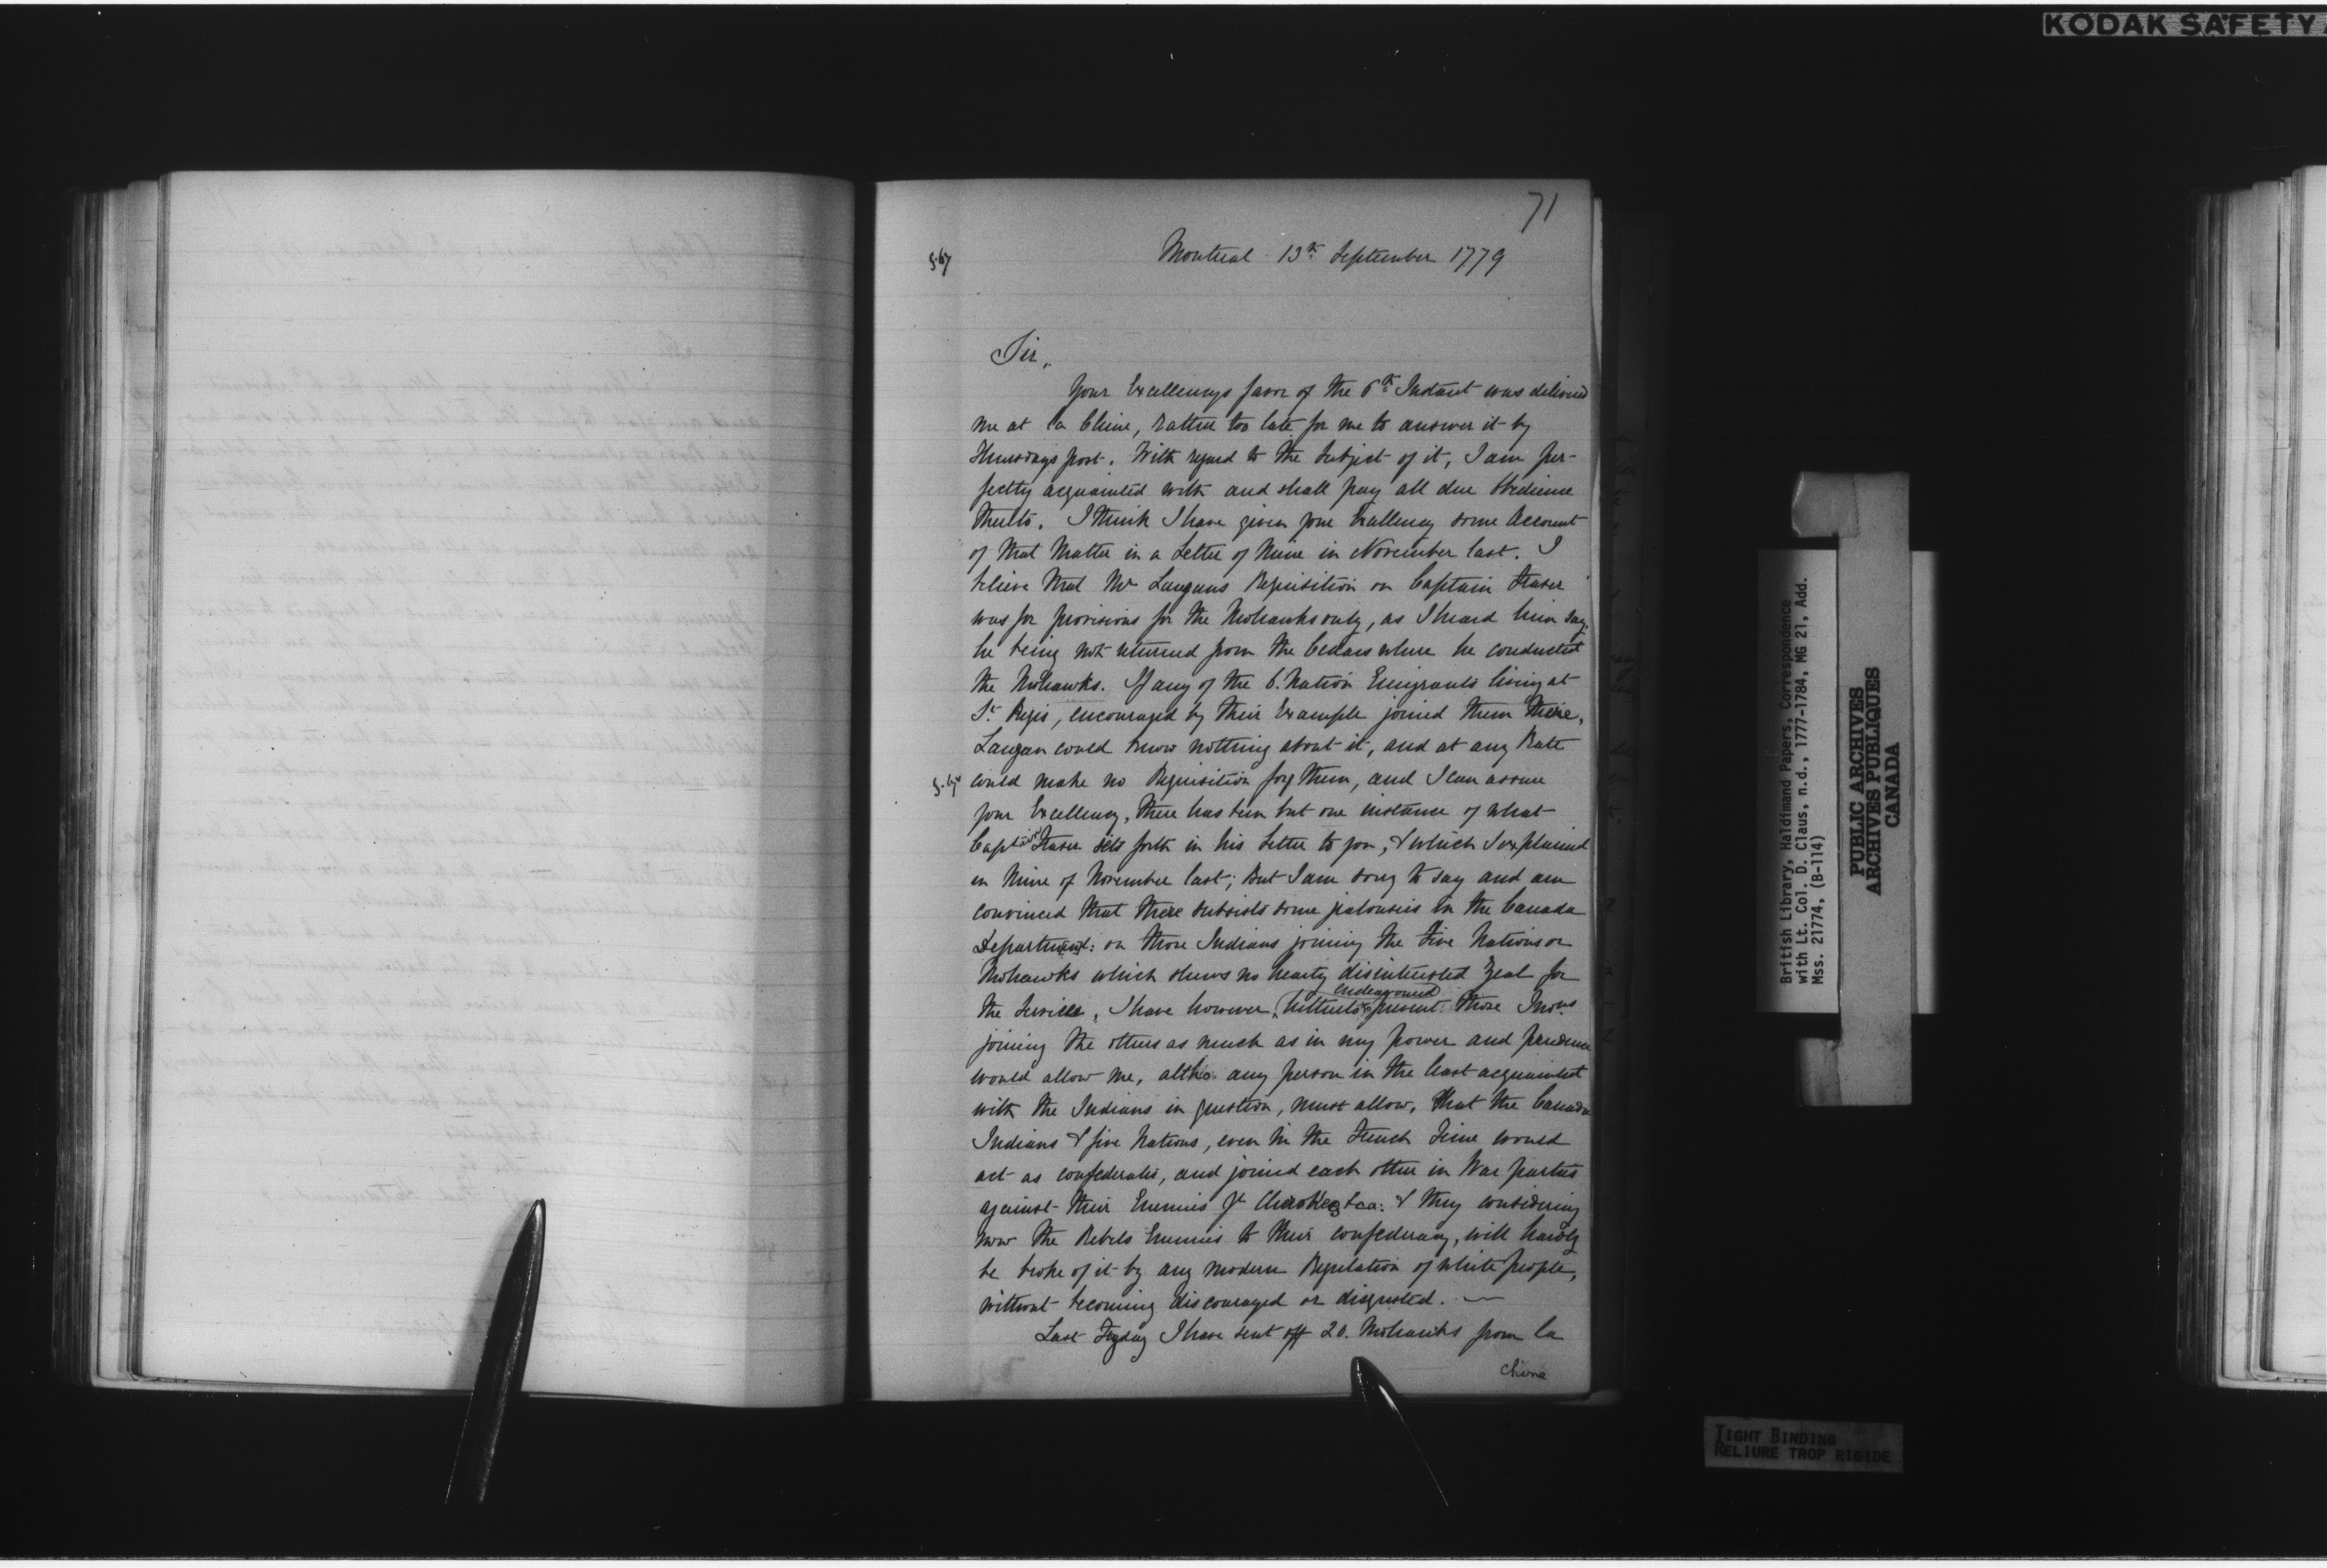 KODAK SAFETY
71
Montreal 13th September 1779
Sir,
Your Excellencys favor of the 6th Instant was delivered
me at la Chine, rather too late for me to answer it by
Thursdays post. With regard to the Subject of it, I am per-
fectly acquainted with and shall pay all due Obedience
thereto. I think I have given your Excellency some Account
of that Matter in a Letter of Mine in November last. I
believe that Mr Langans Requisition on Captain Fraser
was for provisions for the Mohawks only, as I heard him say,
he being not returned from the Cedars where he conducted
the Mohawks. If any of the 6. Nation Emigrants living at
St Regis, encouraged by their Example joined them there,
Langan could know nothing about it, and at any Rate
could make no Requisition for them, and I can assure
your Excellency, there has been but one instance of what
Captain Fraser sets forth in his Letter to you, & which I explained
in Mine of November last; But I am sorry to say and am
convinced that there subsists some jealousies in the Canada
Department: on those Indians joining the Five Nations or
Mohawks which shews no hearty disinterested Zeal for
endeavoured
the Service, I have however hitherto to prevent those Inds
joining the others as much as in my power and prudence
would allow me, altho. any person in the least acquainted
with the Indians in question, must allow, that the Canada
Indians & five Nations, even in the French Time would
act as confederates, and joined each other in War parties
against their Enemies Cherokees & they considering
now the Rebels Enemies to their confederacy, will hardly
be broke of it by any modern Regulation of white people,
without becoming discouraged or disgusted. —
Last Fryday I have sent off 20. Mohawks from la
Chine
British Library, Haldimand Papers, Correspondence
with Lt. Col. D. Claus, n.d., 1777-1784, MG 21, Add.
Mss. 21774, (B-114)
PUBLIC ARCHIVES
ARCHIVES PUBLIQUES
CANADA
TIGHT BINDING
RELIURE TROP RIGIDE